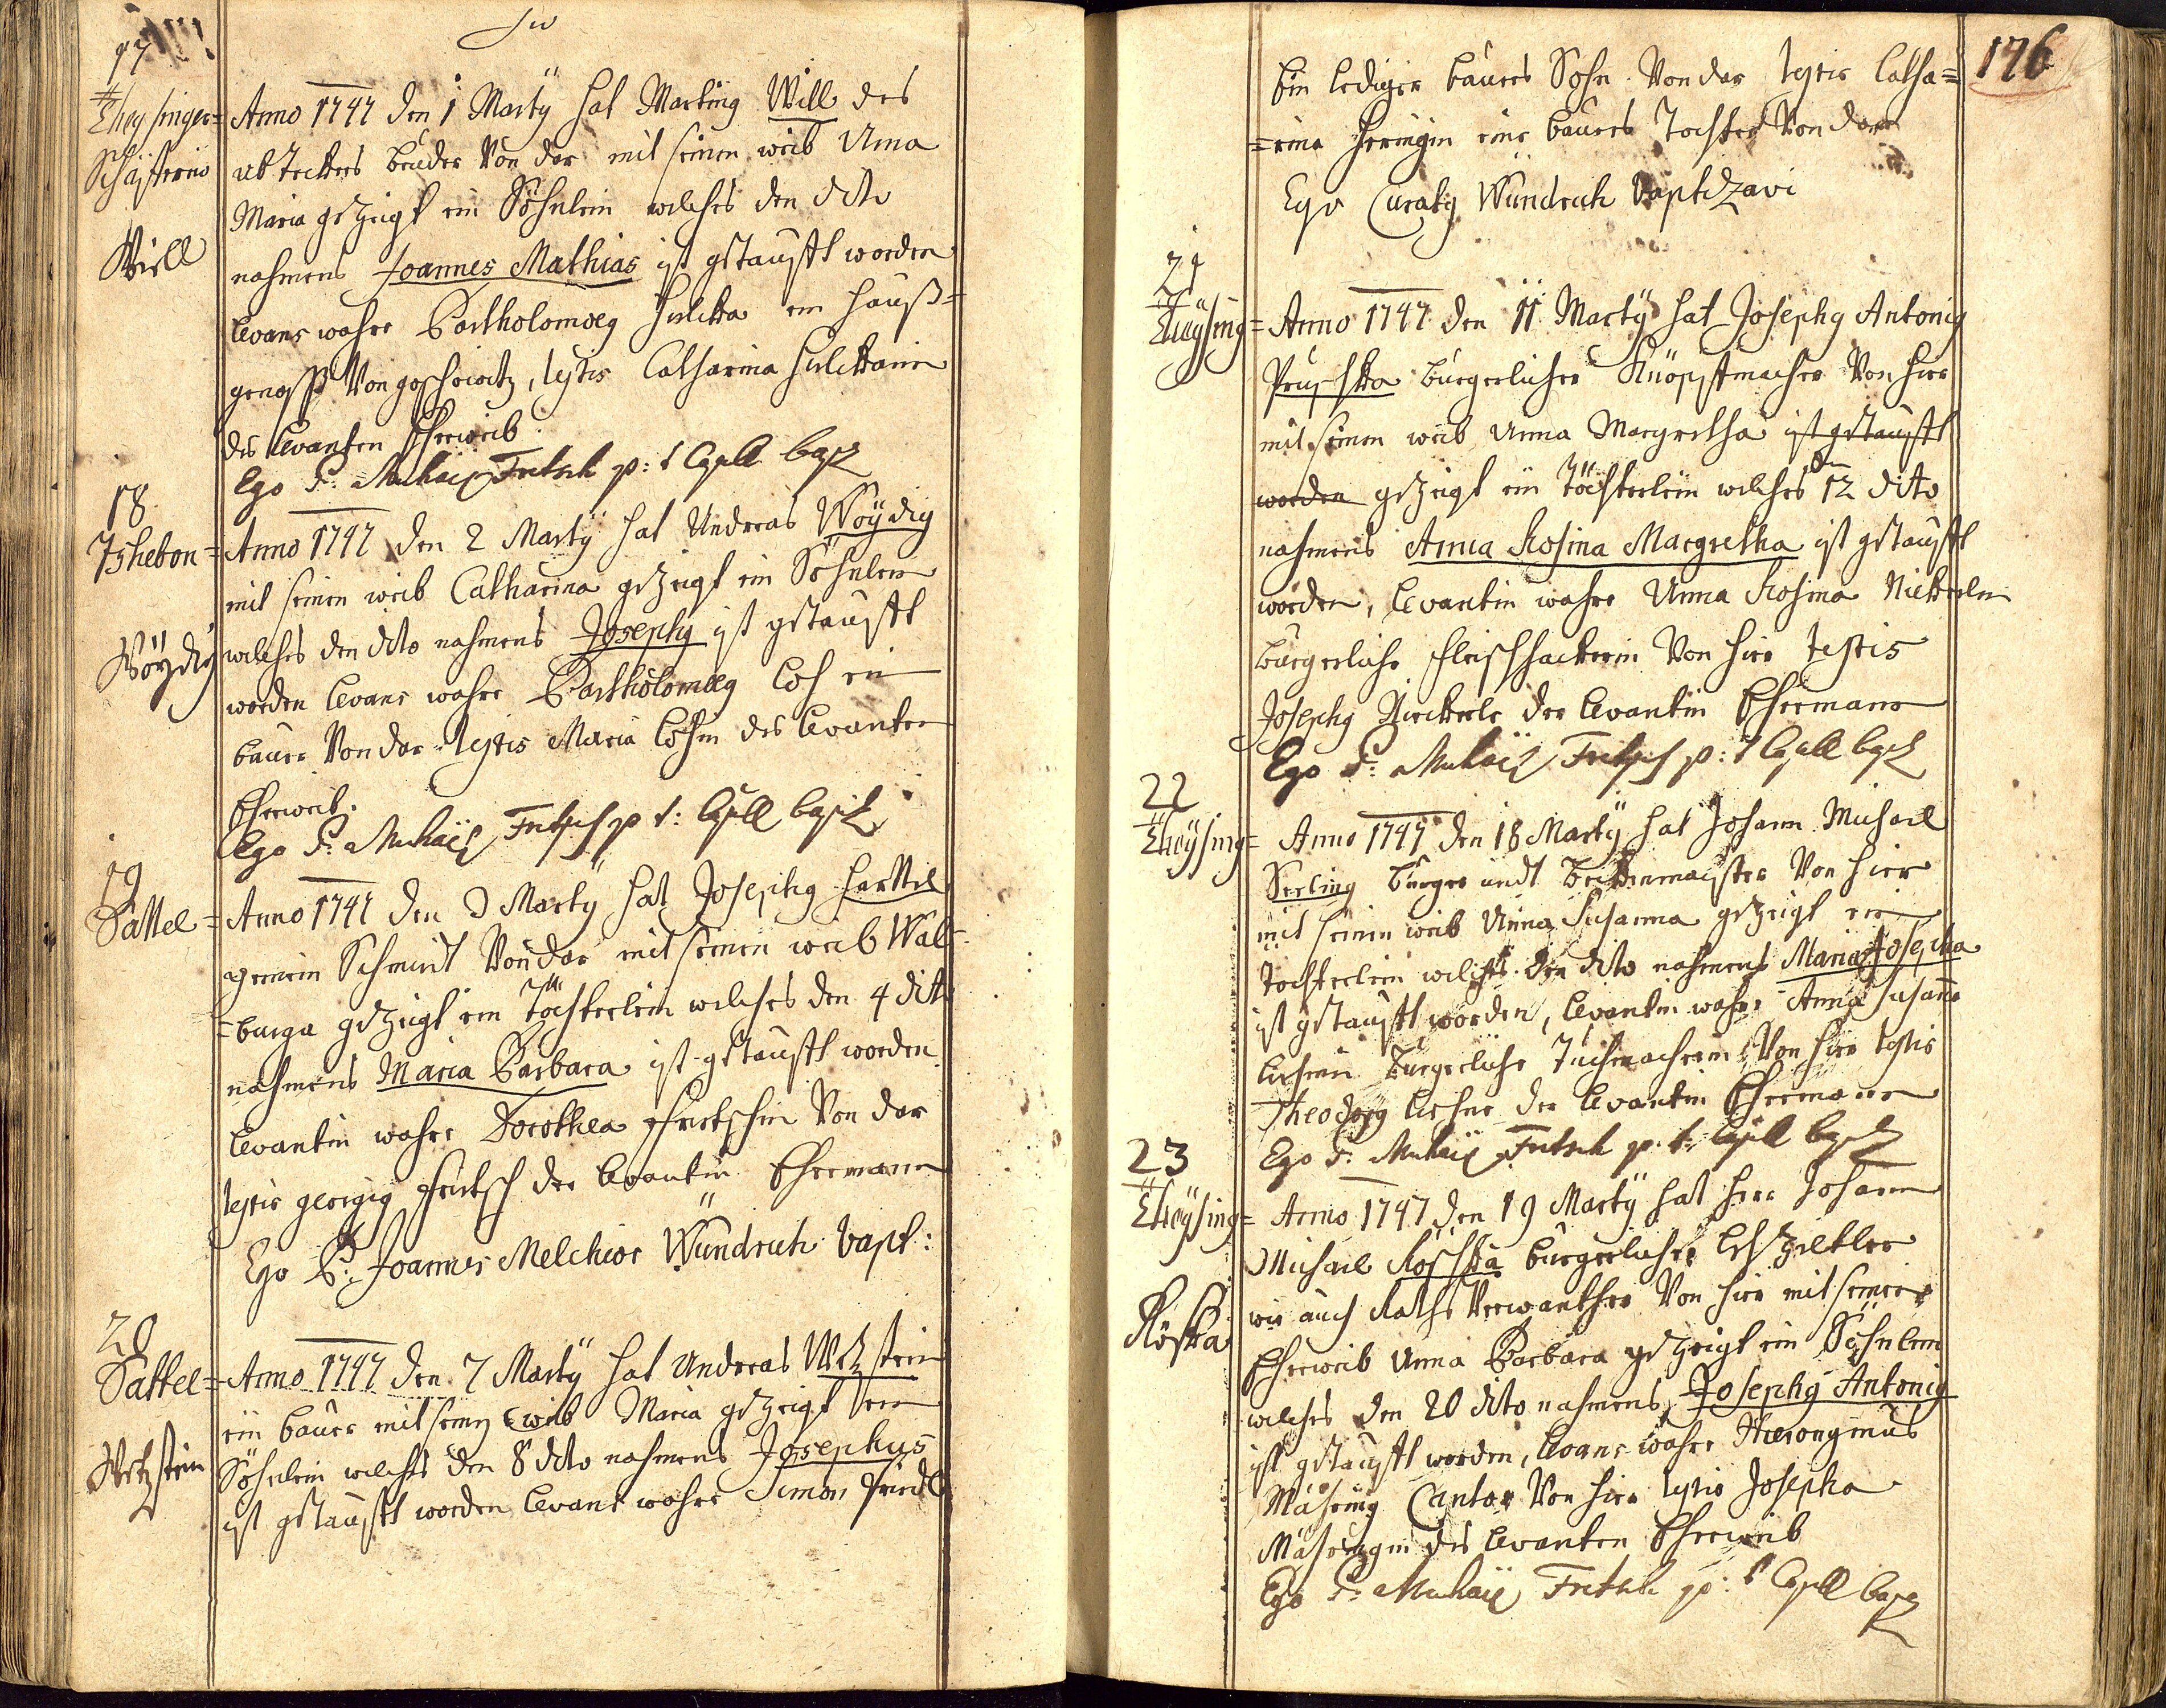 17
Theysinger=
Schäfferey
Will
Anno 1747 den 1 Martÿ hat Marting Will des
Bruder Von dar mit seinen weib Anna
Maria gezeigt ein Söhnlein welches den dito
nahmens Joannes Mathias ist getaufft worden
levans wahre Bartholomaeg ein hauß=
genoss Von , testis Catharina
des levanten Eheweib
Ego P: Fritsch p: t Capell bapt
18
Tshebon=
Wöÿdig
Anno 1747 den 2 Martÿ hat Andreas Wöÿdig
mit seinen weib Catharina gezeigt ein Söhnlein
welches den dito nahmens Josephg ist getaufft
worden levans wahre Bartholomaeg Loh ein
baur Von dar testis Maria Lohin des levanten
Eheweib.
Ego P: Fritsch p t: Capell bapt
19
Sattel=
Anno 1747 den 3 Martÿ hat Josephg Harttel
gemein Schmidt Von dar mit seinen weib Wal=
=burga gezeigt ein Töchterlein welches den 4 dito
nahmens Maria Barbara ist getaufft worden
levantin wahre Dorothea Fritschin Von dar
testis georgig Fritsch der levantin Ehemann
Ego P: Joannes Melchior Wündrich bapt:
20
Sattel=
Wetzstein
Anno 1747 den 7 Martÿ hat Andreas Wetzstein
ein baur mit seinen weib Maria gezeigt ein
Söhnlein welches den 8 dito nahmens Josephus
ist getaufft worden levans wahre Simon
176
Ein lediger baurs Sohn Von dar testis Catha=
=rina Heringin eine baurs Tochter Von dar
Ego Curatg Wündrich baptizavi
21
Theÿsing=
Anno 1747 den 11 Martÿ hat Josephg Antonig
bürgerlicher Knöpffmacher Von hier
mit seinen weib Anna Margretha ist getaufft
worden gezeigt ein Töchterlein welches den 12 dito
nahmens Anna Rosina Margretha ist getaufft
worden, levantin wahre Anna Rosina Nickerlin
bürgerliche Fleischhackerin Von hier testis
Josephg Nickerle der levantin Ehemann
Ego P: Fritsch p: t Capell bapt
22
Theÿsing=
Anno 1747 den 18 Martÿ hat Johann Michael
Serling bürger undt Beckenmaister Von hier
mit seinen weib Anna Susanna gezeigt ein
Tochterlein welches den dito nahmens Maria Josepha
ist getaufft worden, levantin wahre Anna Susanna
bürgerliche Tuchmacherin Von hier testis
Theodorg der levantin Ehemann
Ego P: Fritsch p. t: Capell bapt
23
Theÿsing=
Röska
Anno 1747 den 19 Martÿ hat Herr Johann
Michael Roschka bürgerlicher Lebzeltler
wie auch Raths Verwanther Von hier mit seiner
Eheweib Anna Barbara gezeigt ein Söhnlein
welches den 20 dito nahmens Josephg Antonig
ist getaufft worden, levans wahre Hieronymus
Mähring Cantor Von hier testis Josepha
Mähringin des levanten Eheweib
Ego P: Fritsch p: t Capell bapt